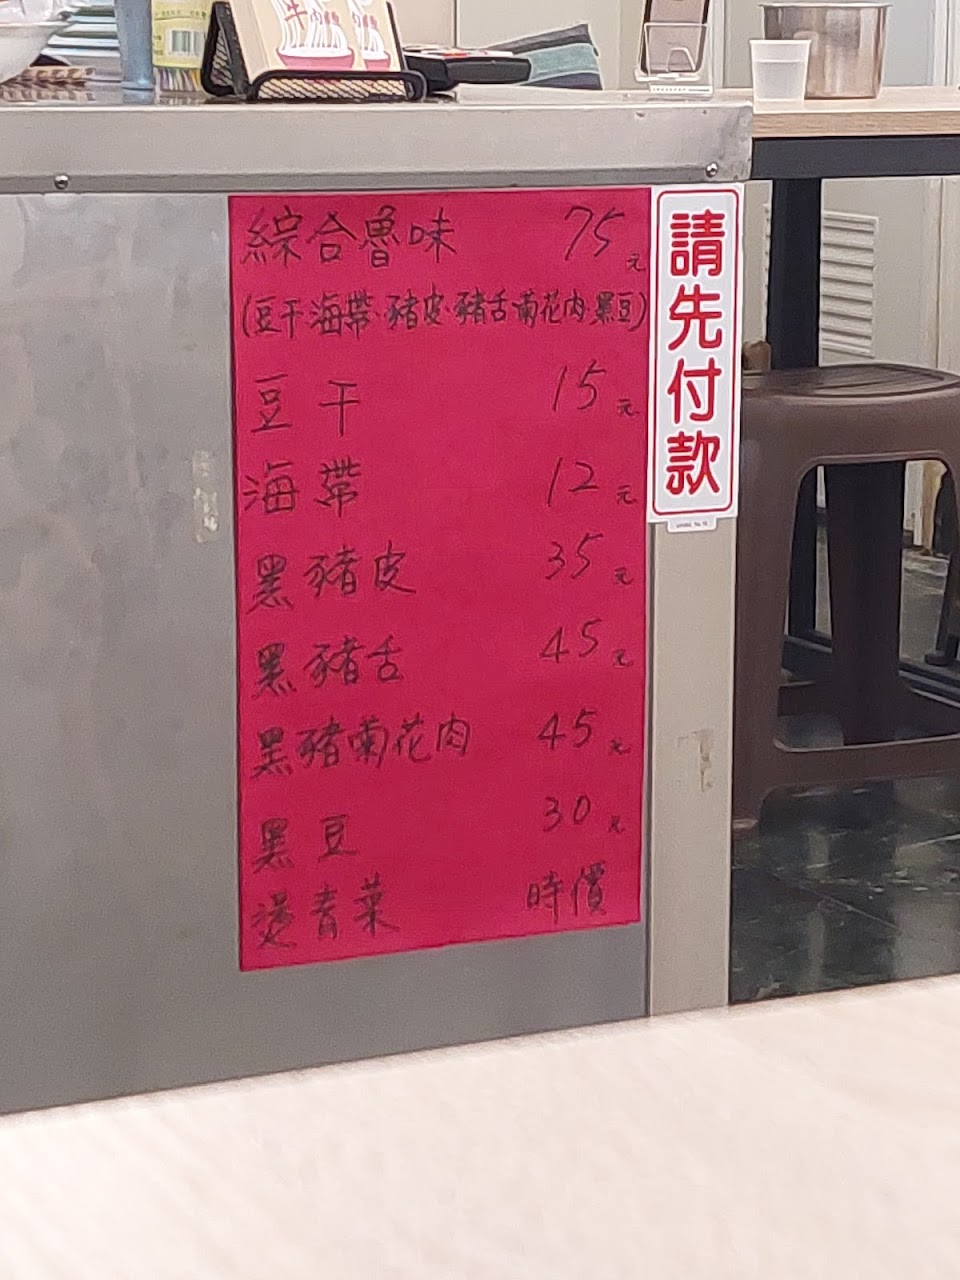 牛肉麵
綜合魯味 75元
(豆干·海帶·豬皮·豬舌·菊花肉·黑豆)
豆干 15元
海帶 12元
黑豬皮 35元
黑豬舌 45元
黑豬菊花肉 45元
黑豆 30元
燙青菜 時價
請先付款